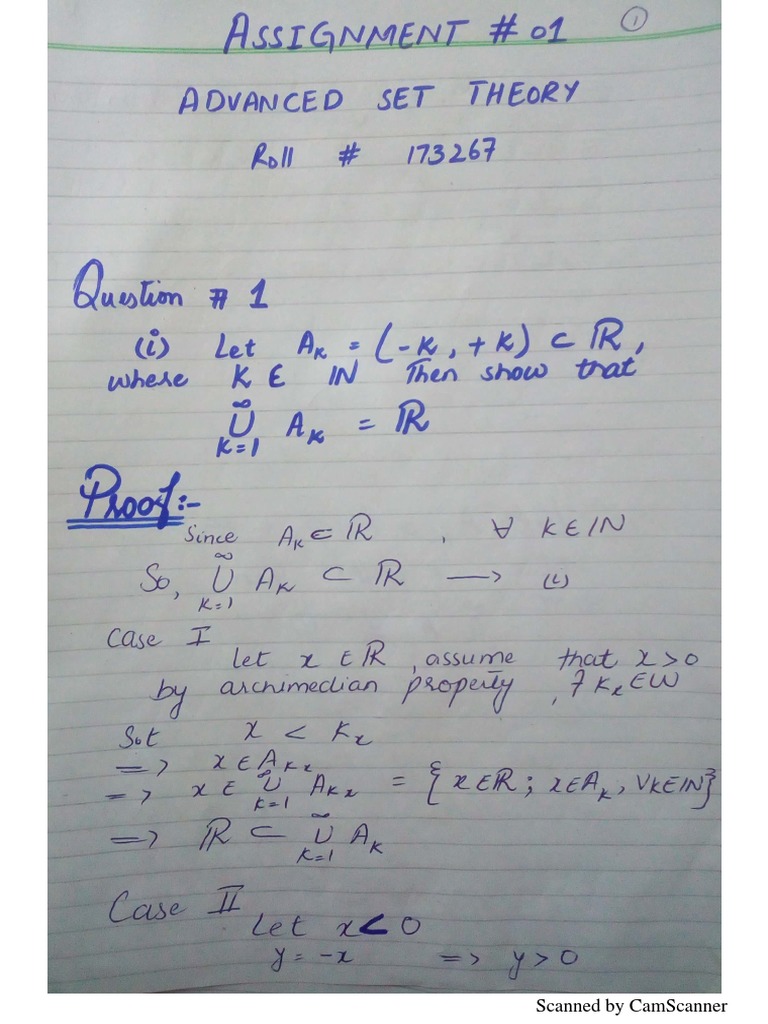 ①
ASSIGNMENT # 01
ADVANCED SET THEORY
Roll # 173267
Question # 1
(i) Let Aₖ = (-K, +K) ⊂ ℝ,
where K ∈ ℕ Then show that
∞
∪ Aₖ = ℝ
K=1
Proof:-
Since Aₖ ∈ ℝ , ∀ K ∈ ℕ
∞
So, ∪ Aₖ ⊂ ℝ ⟶ (i)
K=1
Case I
let x ∈ ℝ, assume that x > 0
by archimedian property, ∃ Kₓ ∈ W
S.t x < Kₓ
=> x ∈ A_Kₓ
∞
=> x ∈ ∪ A_Kₓ = {x∈ℝ ; x∈Aₖ, ∀K∈ℕ}
K=1
∞
=> ℝ ⊂ ∪ Aₖ
K=1
Case II
Let x < 0
y = -x => y > 0
Scanned by CamScanner